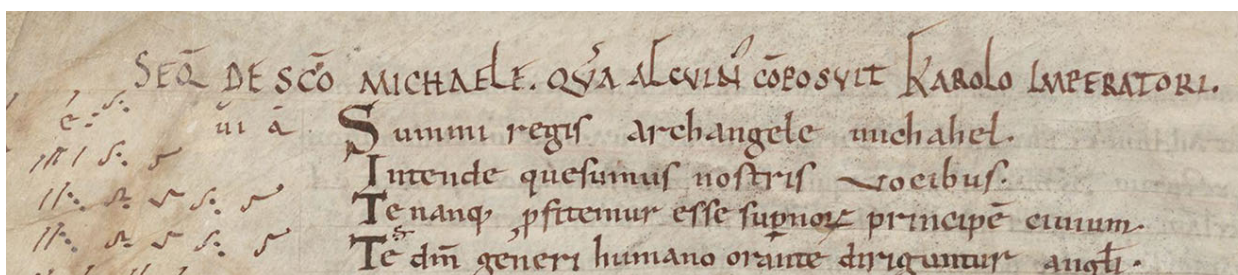 SEQ̄ DE SC̄O MICHAELE. QVA ALCVIN᷒ CŌPOSVIT KAROLO IMPERATORI.
Summi regis archangele michahel.
Intende quesumus nostris vocibus.
Te nanq; ꝓfitemur esse sup̄noꝝ principē ciuium.
Te dm̄ generi humano orante diriguntur angl̄i.